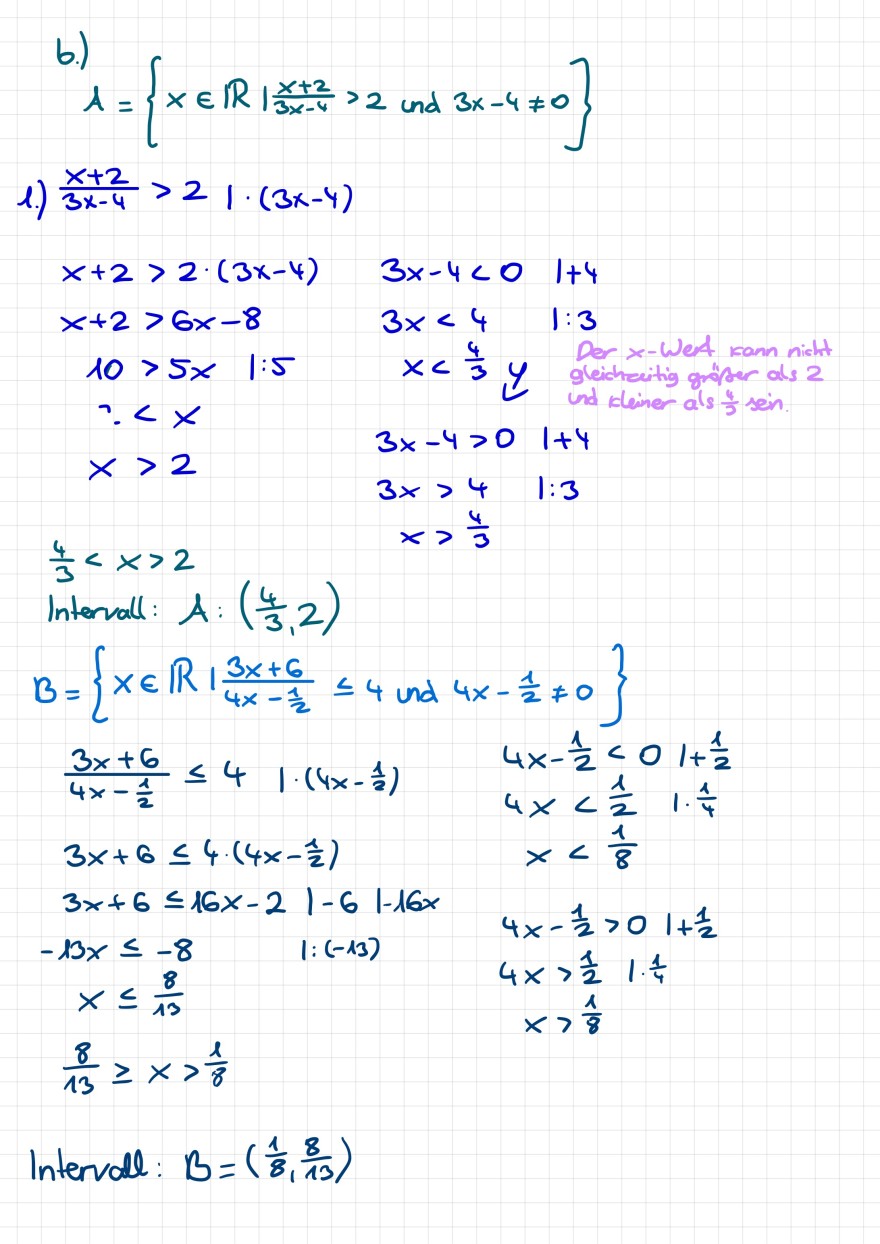 b.)
A = { x ∈ ℝ | (x+2)/(3x-4) > 2 und 3x-4 ≠ 0 }
1.) (x+2)/(3x-4) > 2 | · (3x-4)
x+2 > 2·(3x-4)
x+2 > 6x-8
10 > 5x |:5
< x
x > 2
3x-4 < 0 |+4
3x < 4 |:3
x < 4/3
Der x-Wert kann nicht
gleichzeitig größer als 2
und kleiner als 4/3 sein.
3x-4 > 0 |+4
3x > 4 |:3
x > 4/3
4/3 < x > 2
Intervall: A: (4/3, 2)
B = { x ∈ ℝ | (3x+6)/(4x-1/2) ≤ 4 und 4x-1/2 ≠ 0 }
(3x+6)/(4x-1/2) ≤ 4 | · (4x-1/2)
3x+6 ≤ 4·(4x-1/2)
3x+6 ≤ 16x-2 |-6 |-16x
-13x ≤ -8 |:(-13)
x ≤ 8/13
8/13 ≥ x > 1/8
4x-1/2 < 0 |+1/2
4x < 1/2 |·1/4
x < 1/8
4x-1/2 > 0 |+1/2
4x > 1/2 |·1/4
x > 1/8
Intervall: B = (1/8, 8/13)